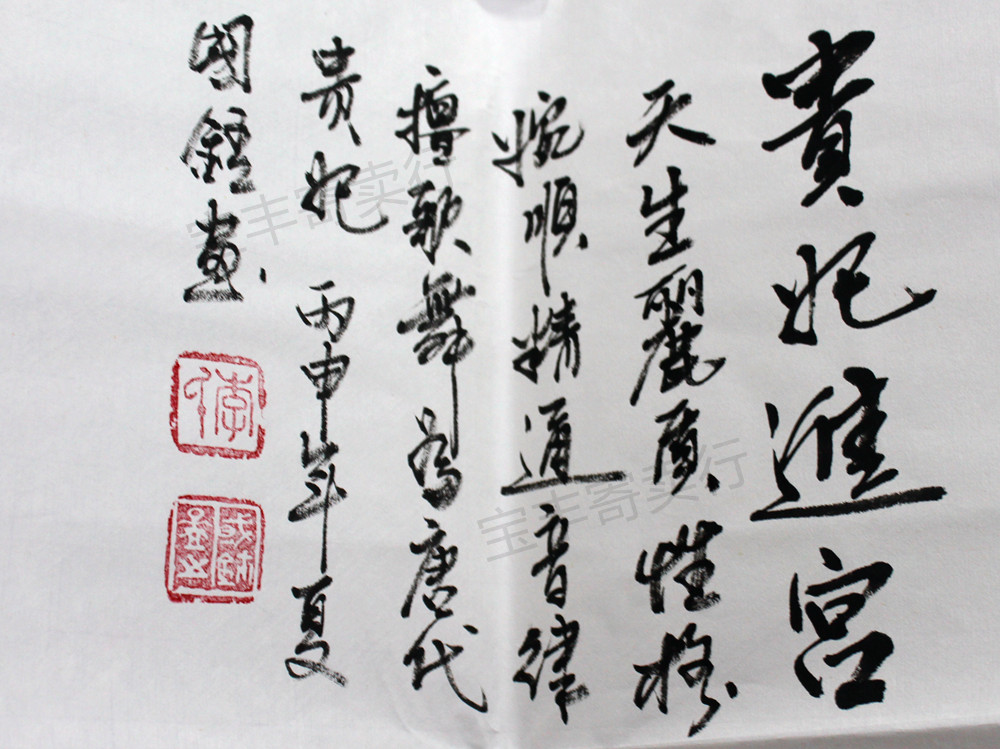 貴妃進宮
天生麗质性格
婉順精通音律
擅歌舞為唐代
贵妃 丙申年夏
國鍾画
宝丰寄卖行
宝丰寄卖行